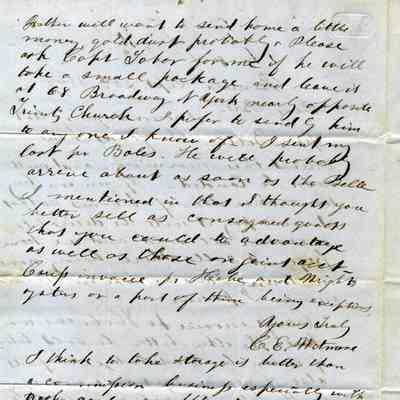 Father will want to send home a little
money gold dust probably. Please
ask Capt Tabor for me if he will
take a small package and leave it
at 68 Broadway N York nearly opposite
Trinity Church. I prefer to send by him
to any one I know of. I sent my
last pr Bales. He will probably
arrive about as soon as the Belle
I mentioned in that I thought you
better sell as consigned goods
that you could to advantage
as well as those on joint acct
invoice pr and Wrights
or a part of them being exceptions,
Yours Truly
C. E. Wetmore
I think to take storage is better than
a commission business especially with